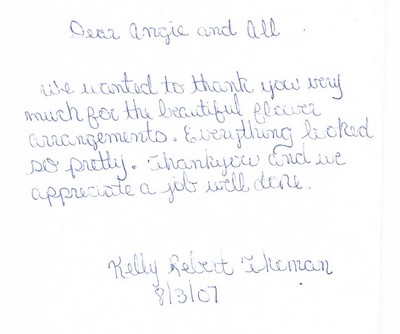 Dear Angie and All
We wanted to thank you very
much for the beautiful flower
arrangements. Everything looked
so pretty. Thankyou and we
appreciate a job well done.
Kelly
8/3/07